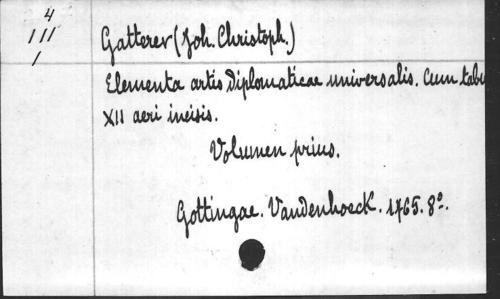 4
111
1
Gatterer (Joh. Christoph.)
Elementa artis diplomaticae universalis. Cum tabu
XII aeri incisis.
Volumen prius.
Gottingae. Vandenhoeck. 1765. 8º.